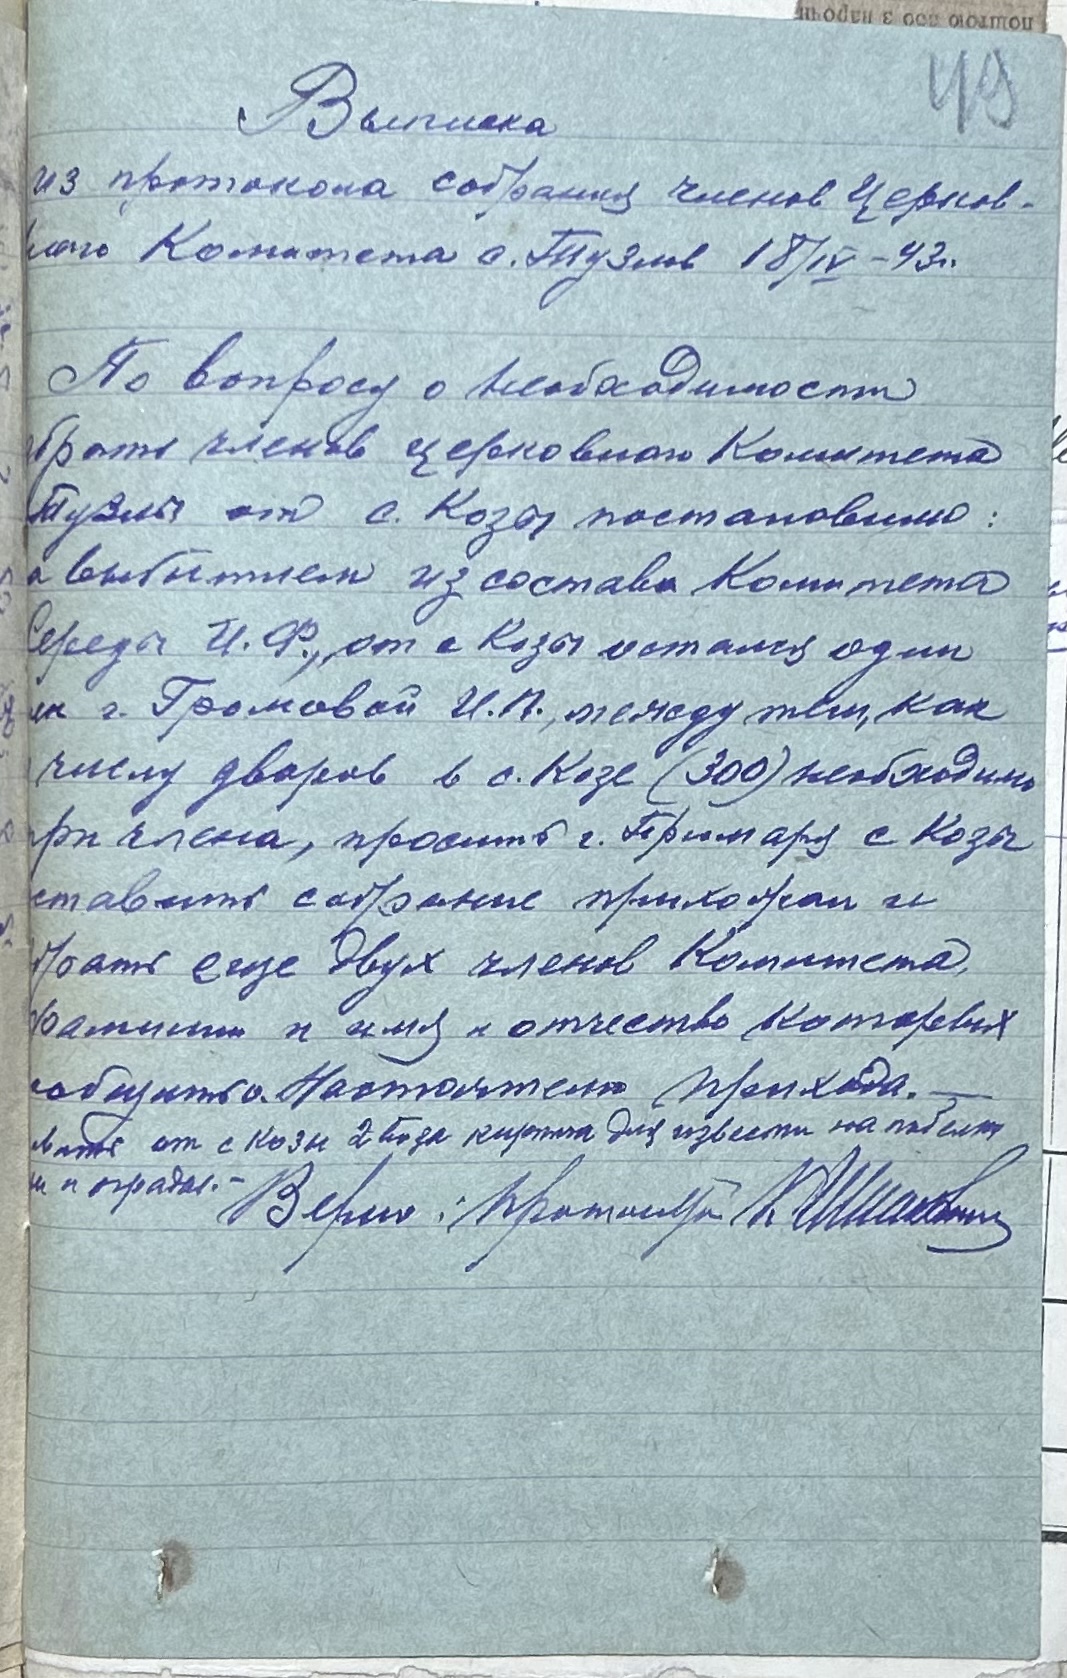 49
Выписка
из протокола собрания членов Церков-
ного Комитета с. Тузлов 18/IV - 43 г.
По вопросу о необходимости
брать членов церковного Комитета
Тузлы от с. Козы постановили:
выбытием из состава Комитета
Середы И. Ф., от с Козы остался один
г. Громовой И.П., между тем, как
числу дворов в с. Козе (300) необходимо
три члена, просить г. Примаря с Козы
ставить собрание прихожан и
брать еще двух членов Комитета,
фамилии и имя и отчество которых
сообщить о. Настоятелю прихода. —
от с Козы 2 воза для извести на побелку
и ограды. —
Верно: Протоиерей